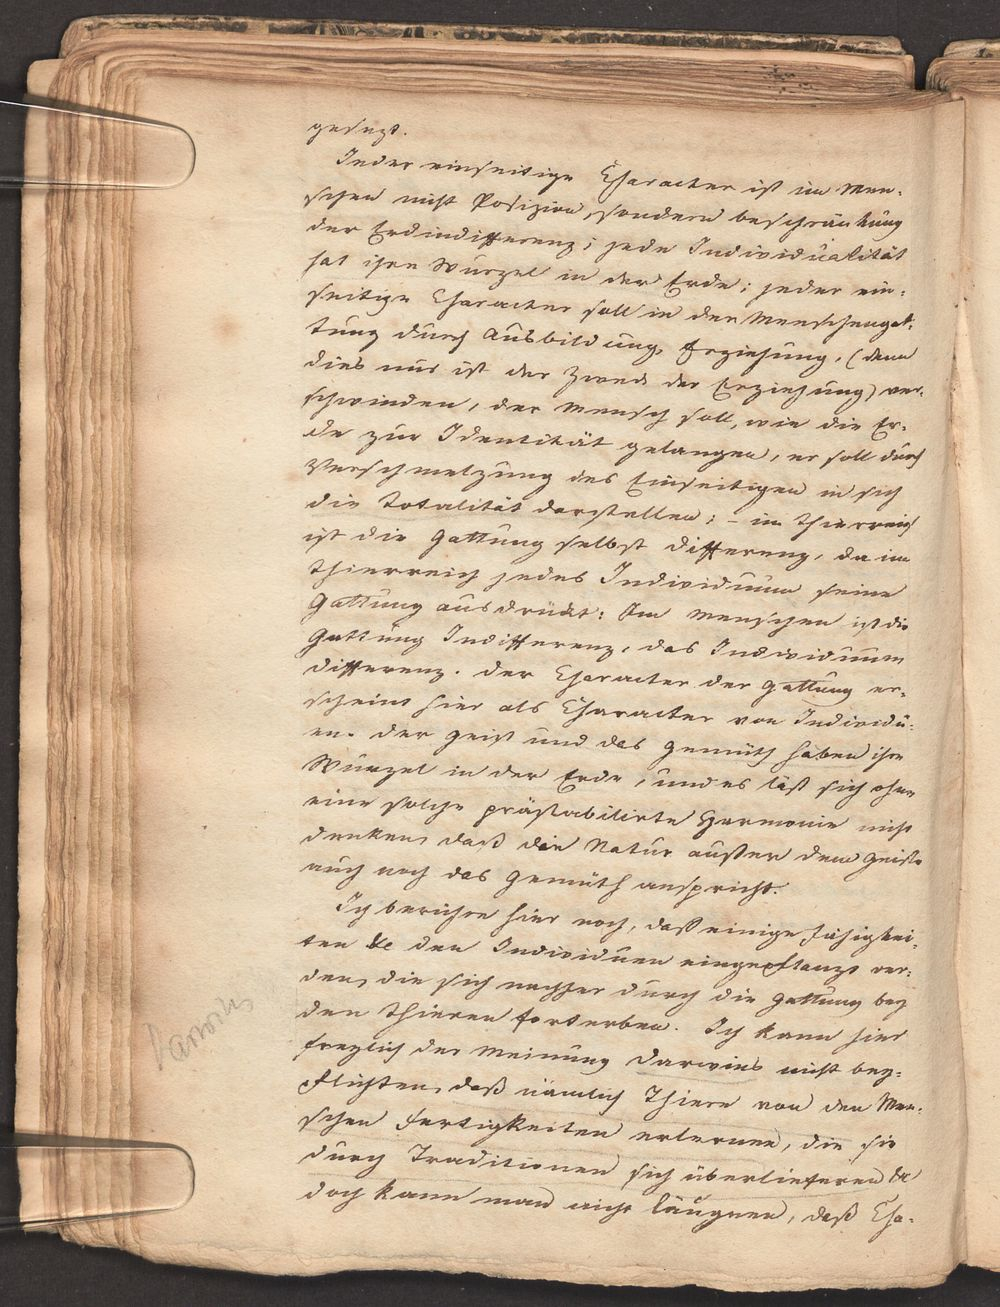 gesezt.
Jeder einseitige Character ist im Men-
schen nicht Position, sondern beschränkung
der Erdindifferenz; jede Individualität
hat ihre Wurzel in der Erde; jeder ein-
seitige Character soll in der Menschengat-
tung durch Ausbildung, Erziehung, (denn
dies nur ist der Zweck der Erziehung) ver-
schwinden, der Mensch soll, wie die Er-
de zur Identität gelangen, er soll durch
Verschmelzung des Einseitigen in sich
die Totalität darstellen; – im Thierreich
ist die Gattung selbst Differenz, da im
Thierreich jedes Individuum seine
Gattung ausdrückt: Im Menschen ist die
Gattung Indifferenz, das Individuum
Differenz. der Character der Gattung er-
scheint hier als Character von Individu-
en. der Geist und das Gemüth haben ihre
Wurzel in der Erde, und es läßt sich ohne
eine solche prästabilirte Harmonie nicht
denken, daß die Natur außer dem Geiste
auch noch das Gemüth anspricht.
Ich berühre hier noch, daß einige Fähigkei-
ten &c den Individuen eingepflanzt wer-
den, die sich nachher durch die Gattung bey
den Thieren forterben. Ich kann hier
freylich der Meinung Darwins nicht bey-
pflichten, daß nämlich Thiere von den Men-
schen Fertigkeiten erlernen, die sie
durch Traditionen sich überlieferen &c
doch kann man nicht läugnen, daß Cha-
Darwin